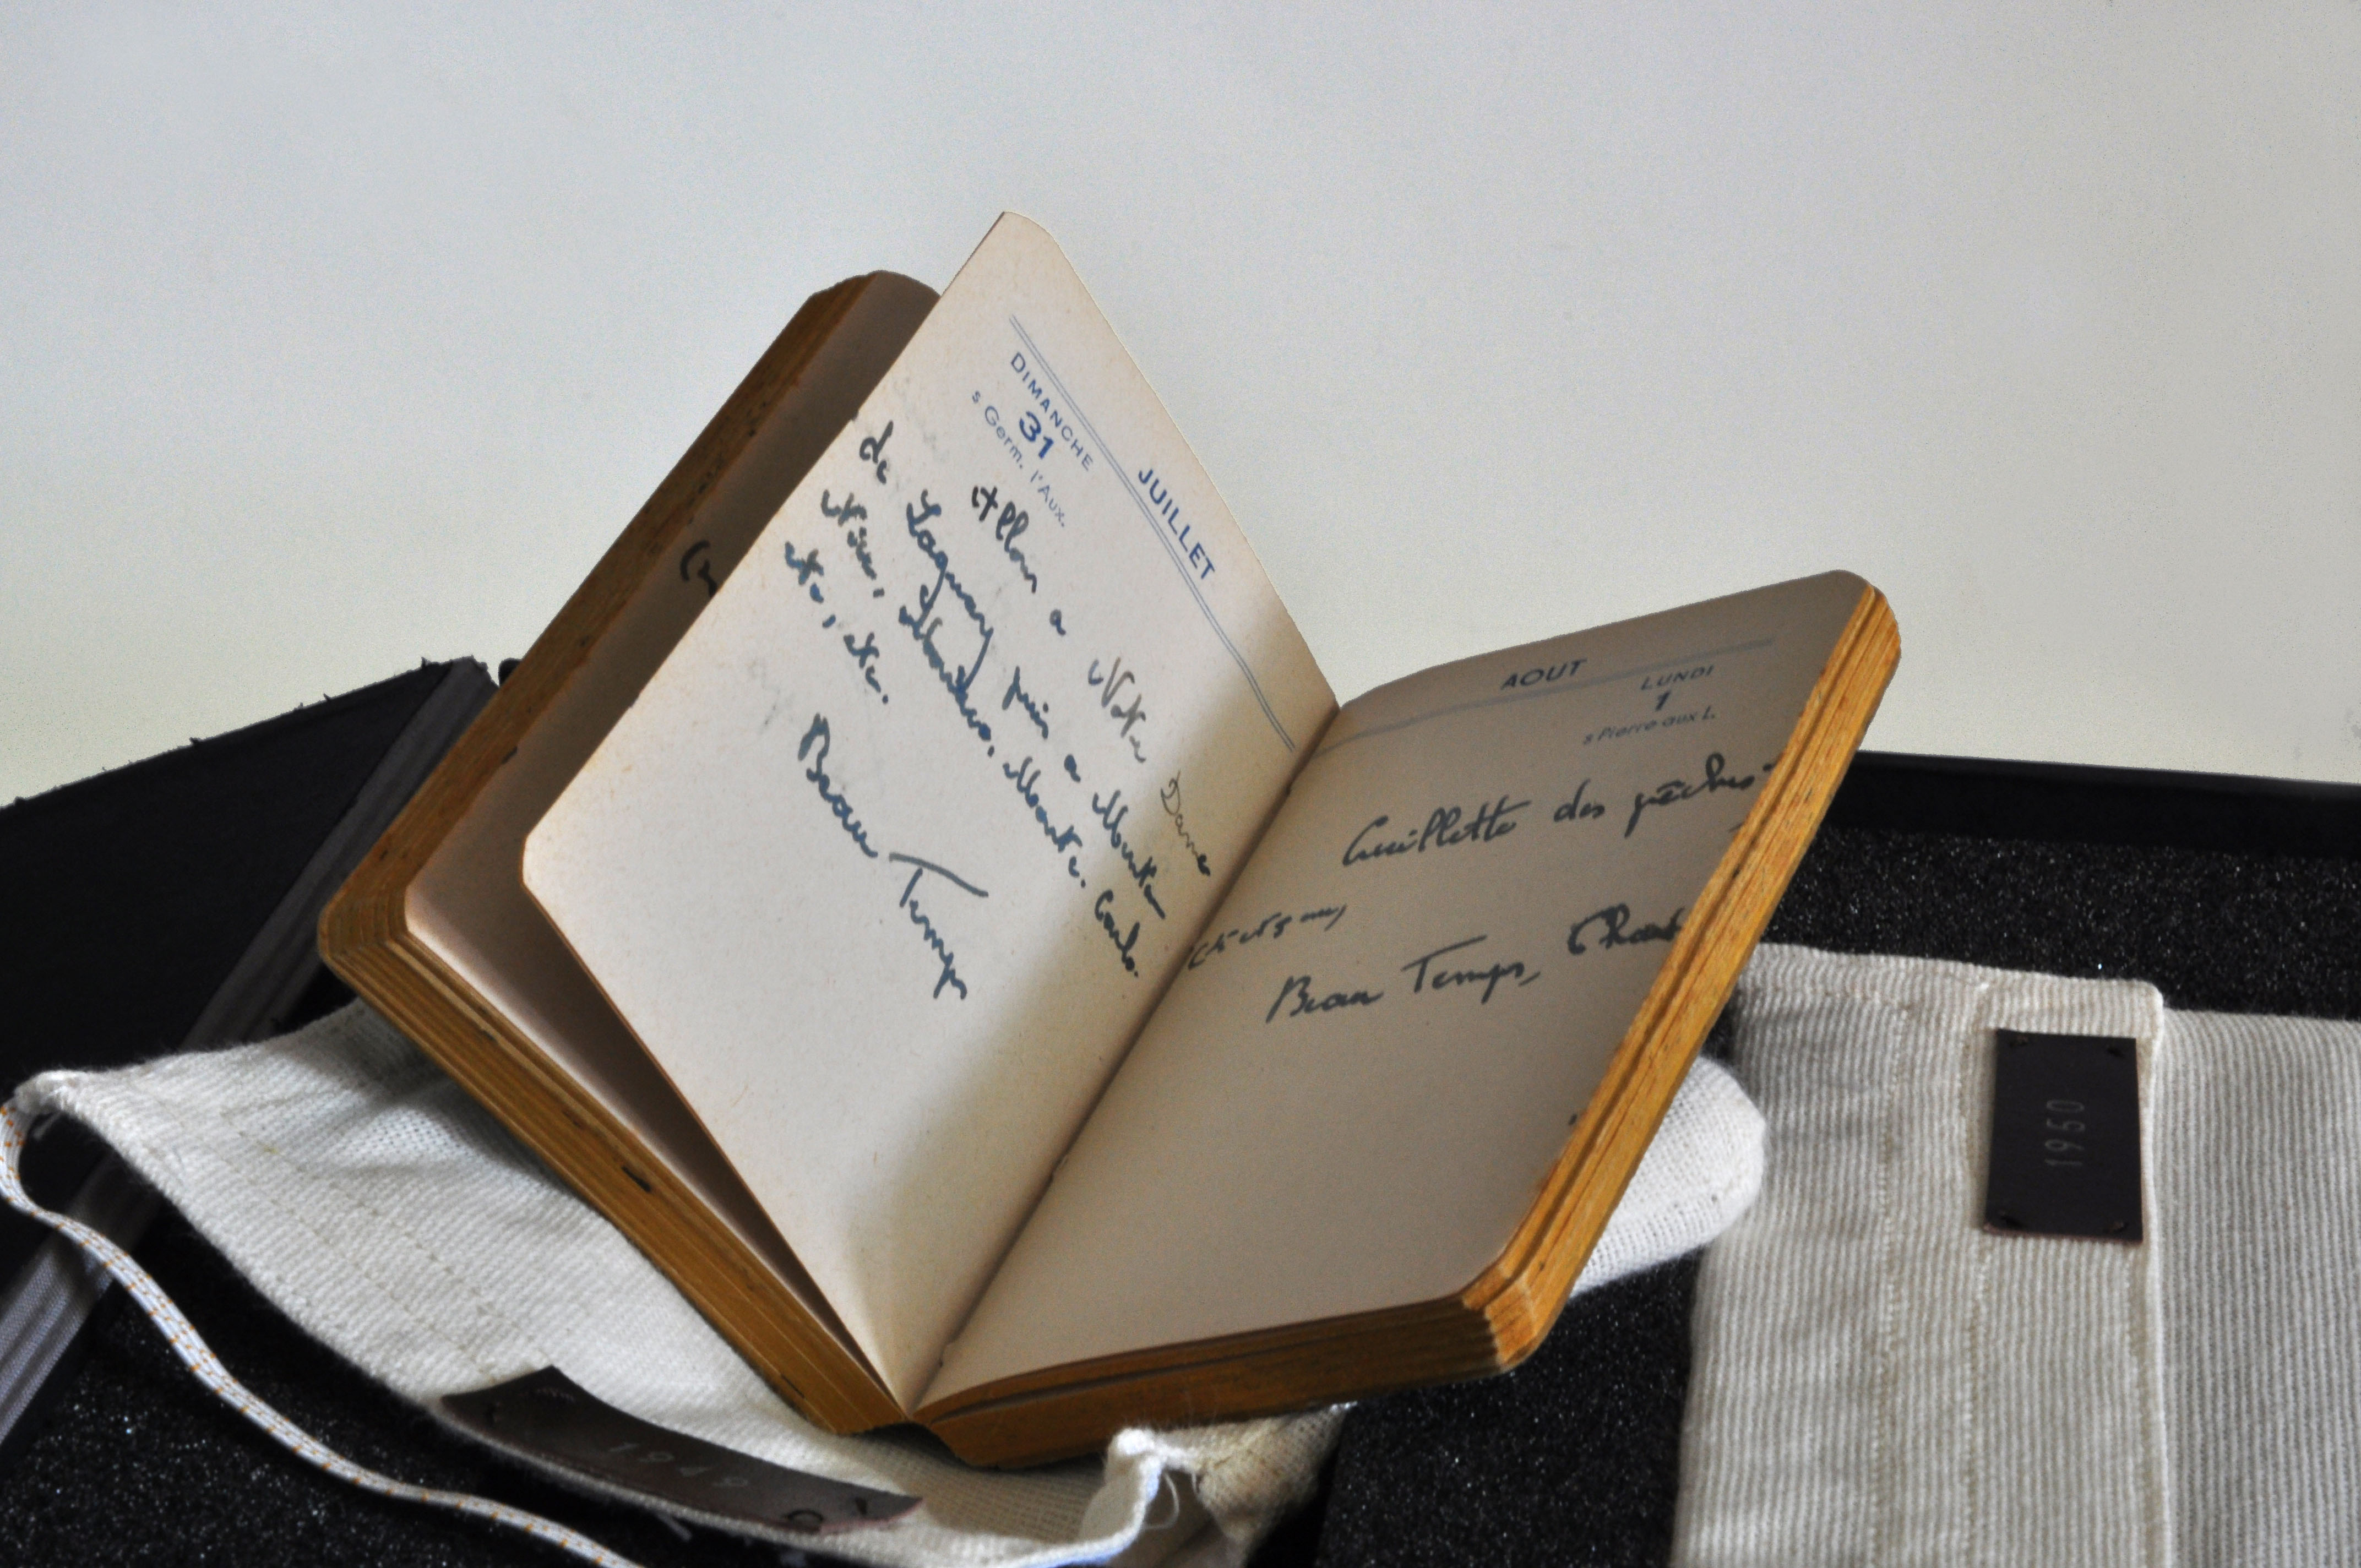 JUILLET
DIMANCHE
31
s Germ. l'Aux.
Allons a Notre Dame
de Laghet puis a Menton
Nice, Monte. Carlo.
etc, etc.
Beau Temps
AOUT
LUNDI
1
s Pierre aux L.
Cueillette des pêches
Beau Temps, Chaud
1949
1950